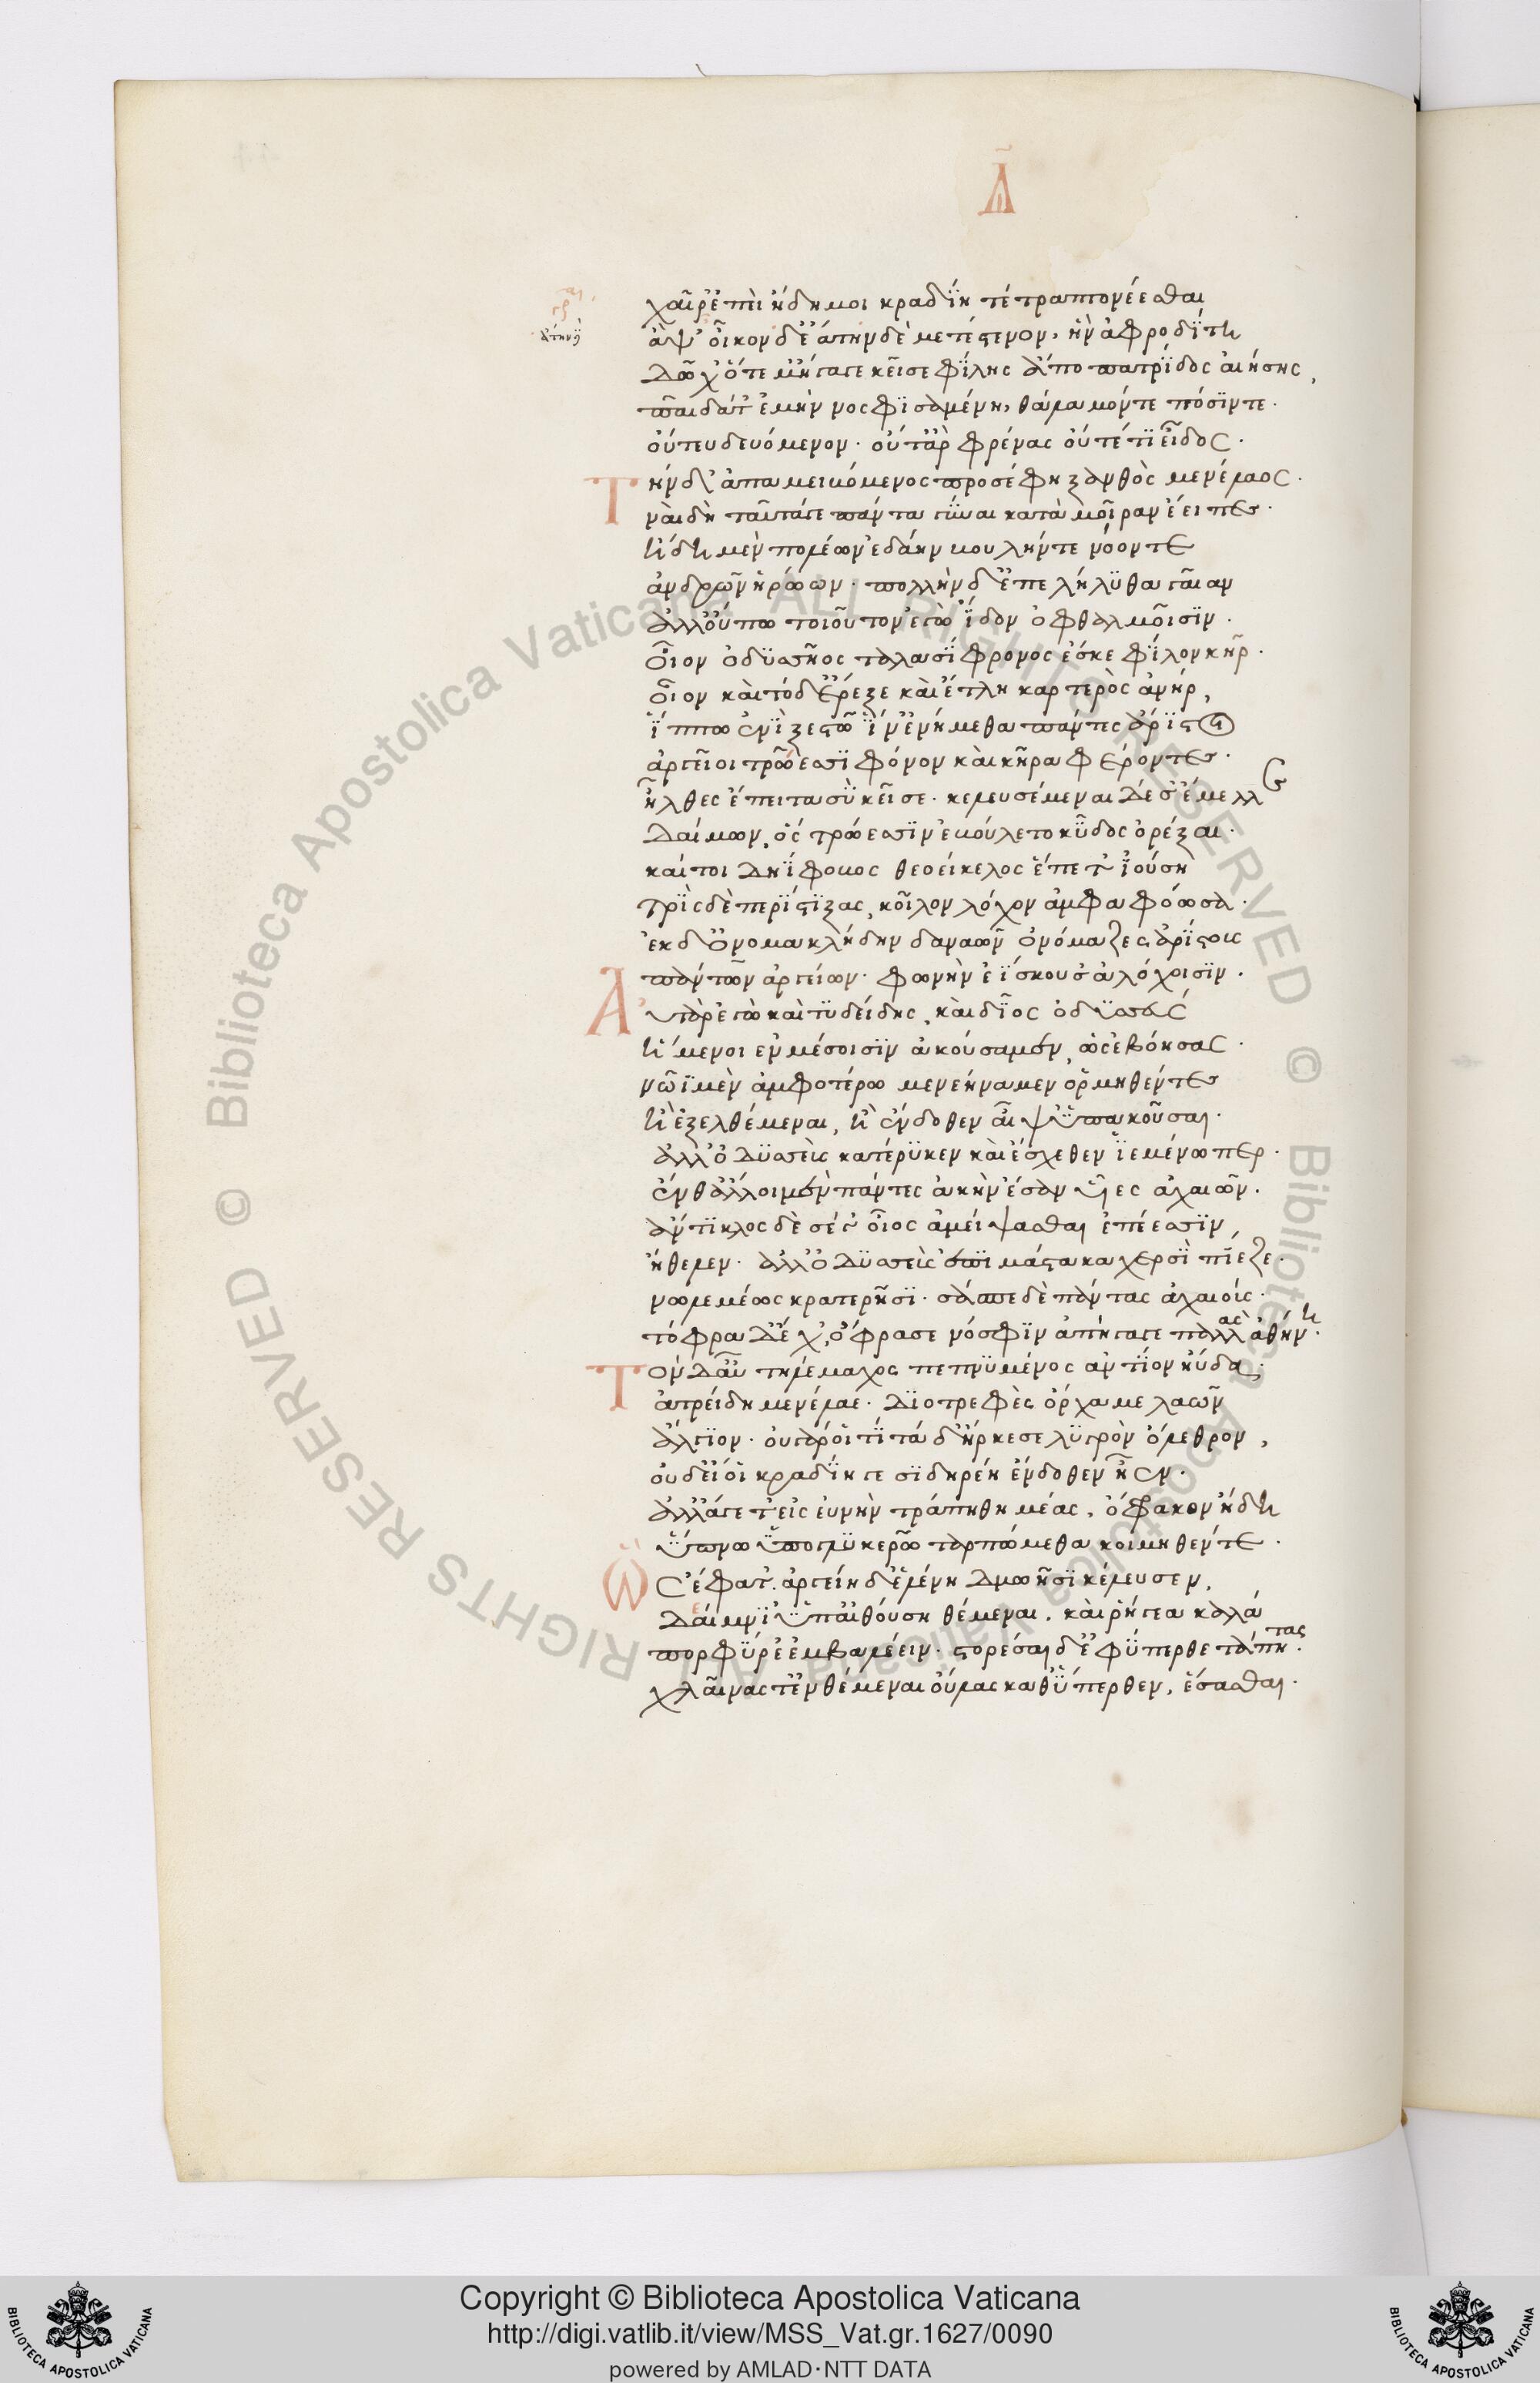 Δ̄
χαῖρ' ἐπεὶ ἤδη μοι κραδίη τέτραπτο νέεσθαι
γρ
ἂψ οἶκον δ' ἐ ἄτην δὲ μετέστενον, ἣν ἀφροδίτη
δῶχ' ὅτε μ' ἤγαγε κεῖσε φίλης ἀπὸ πατρίδος αἴησης,
παῖδά τ' ἐμὴν νοσφισαμένη, θάλαμόν τε πόσιν τε.
οὔ τευ δευόμενον. οὔτ' ἂρ φρένας οὔτέ τι εἶδος.
Τὴν δ' ἀπαμειβόμενος προσέφη ξανθὸς μενέλαος.
ναὶ δὴ ταῦτά γε πάντα γύναι κατὰ μοῖραν ἔειπες.
ἤδη μὲν πολέων ἐδάην βουλήν τε νόον τε
ἀνδρῶν ἡρώων. πολλὴν δ' ἐπελήλυθα γαῖαν
ἀλλ' οὔπω τοιοῦτον ἐγὼ ἴδον ὀφθαλμοῖσιν.
οἷον ὀδυσσῆος ταλασίφρονος ἔσκε φίλον κῆρ.
οἷον καὶ τόδ' ἔρεξε καὶ ἔτλη καρτερὸς ἀνήρ,
ἵππω ἐνὶ ξεστῶ ἵν' ἐνήμεθα πάντες ἄριστοι
ἀργεῖοι τρώεσσι φόνον καὶ κῆρα φέροντες.
ἦλθες ἔπειτα σὺ κεῖσε. κελευσέμεναι δέ σ' ἔμελλε
δαίμων, ὃς τρώεσσιν ἐβούλετο κῦδος ὀρέξαι.
καί τοι δηίφοβος θεοείκελος ἕπετ' ἰούση
τρὶς δὲ περίστιξας, κοῖλον λόχον ἀμφαφόωσα.
ἐκ δ' ὀνομακλήδην δαναῶν ὀνόμαζες ἀρίστους
πάντων ἀργείων. φωνὴν ἐίσκουσ' ἀλόχοισιν.
Αὐτὰρ ἐγὼ καὶ τυδείδης, καὶ δῖος ὀδυσσεύς
ἥμενοι ἐν μέσοισιν ἀκούσαμεν, ὡς ἐβόησας.
νῶι μὲν ἀμφοτέρω μενεήναμεν ὁρμηθέντες
ἢ ἐξελθέμεναι, ἢ ἔνδοθεν αἶψ' ὑπακοῦσαι.
ἀλλ' ὀδυσσεὺς κατέρυκεν καὶ ἔσχεθεν ἱεμένω περ.
ἔνθ' ἄλλοι μὲν πάντες ἀκὴν ἔσαν υἷες ἀχαιῶν.
ἄντικλος δὲ σέ γ' οἶος ἀμείψασθαι ἐπέεσσιν,
ἤθελεν. ἀλλ' ὀδυσσεὺς ἐπὶ μάστακα χερσὶ πίεζε.
νωλεμέως κρατερῆσι. σάωσε δὲ πάντας ἀχαιούς.
τόφρα δ' ἔχ', ὄφρα σε νόσφιν ἀπήγαγε παλλὰς ἀθήνη.
Τὸν δ' αὖ τηλέμαχος πεπνυμένος ἀντίον ηὔδα.
ἀτρείδη μενέλαε. διοτρεφὲς ὄρχαμε λαῶν
ἄλγιον. οὐ γάρ οἵ τι τά δ' ἤρκεσε λυγρὸν ὄλεθρον,
οὐδ' εἴ οἱ κραδίη γε σιδηρέη ἔνδοθεν ἦεν.
ἀλλ' ἄγετ' εἰς εὐνὴν τράπηθ' ἡμέας, ὄφρα κεν ἤδη
ὕπνω ὕπο γλυκερῶ ταρπώμεθα κοιμηθέντε.
Ὣς ἔφατ'. ἀργείη δ' ἑλένη δμωῆσι κέλευσεν,
δέμνι' ὑπ' αἰθούση θέμεναι, καὶ ῥήγεα καλά
πορφύρε' ἐμβαλέειν. στορέσαι δ' ἐφύπερθε τάπητας.
χλαίνας τ' ἐνθέμεναι οὔλας καθύπερθεν, ἕσασθαι.
Copyright © Biblioteca Apostolica Vaticana
http://digi.vatlib.it/view/MSS_Vat.gr.1627/0090
powered by AMLAD·NTT DATA
BIBLIOTECA APOSTOLICA VATICANA
BIBLIOTECA APOSTOLICA VATICANA
© Biblioteca Apostolica Vaticana ALL RIGHTS RESERVED © Biblioteca Apostolica Vaticana ALL RIGHTS RESERVED